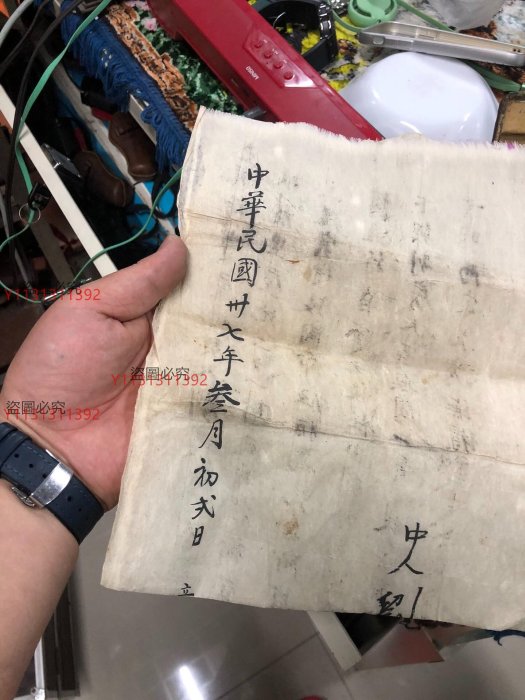 中人
中華民國卅七年叁月初弍日
立
Y1131311392
盜圖必究
Y1131311392
盜圖必究
Y1131311392